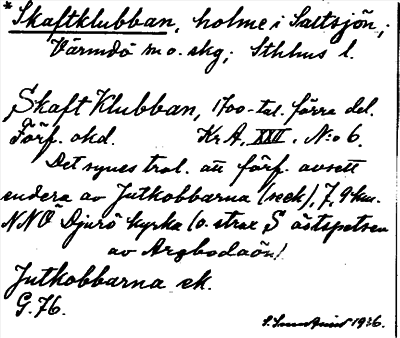 * Skaftklubban, holme i Saltsjön,;
Värmdö m o. skg; Sthlms l.
Skaft Klubban, 1700-tal. förra del.
Förf. okd. Kr A, XXII, N:o 6.
Det synes trol. att förf. avsett
endera av Jutkobbarna (nek), 7,9 km.
NNO Djurö kyrka (o. strax S östspetsen
av Aregbodaön).
Jutkobbarna ek.
G. 76.
1936.